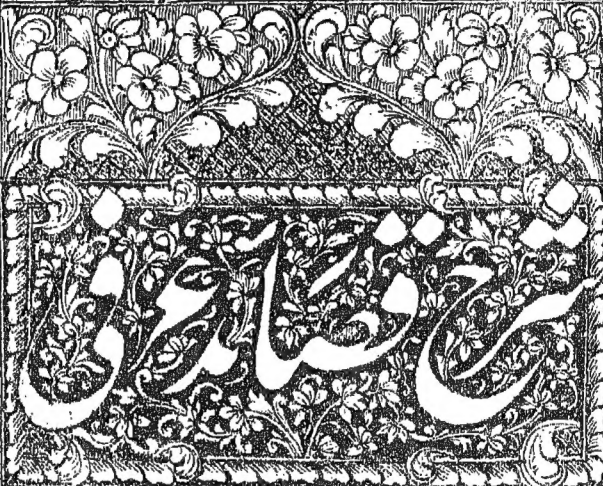 شرح قصائد عرفی